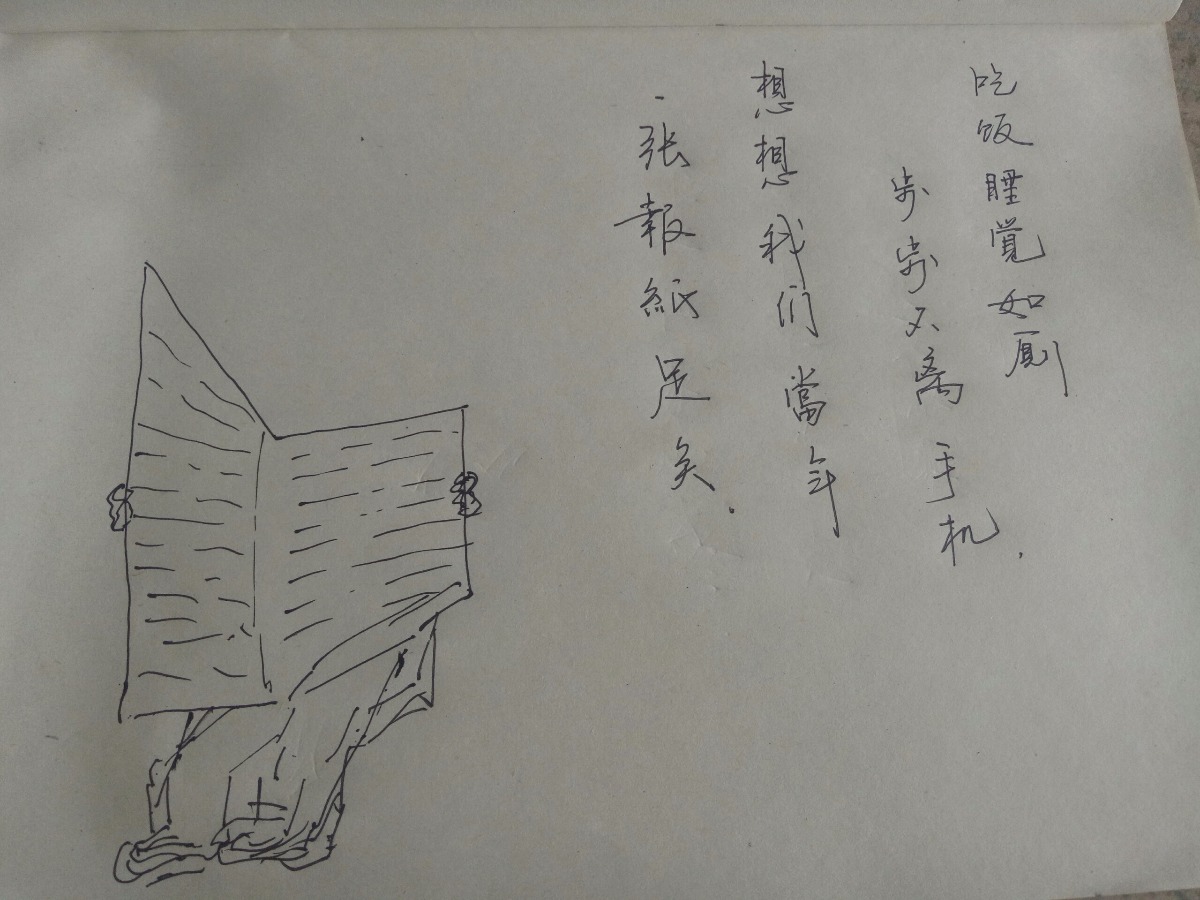 吃饭睡觉如厕
步步不离手机.
想想我们當年
一張報紙足矣.